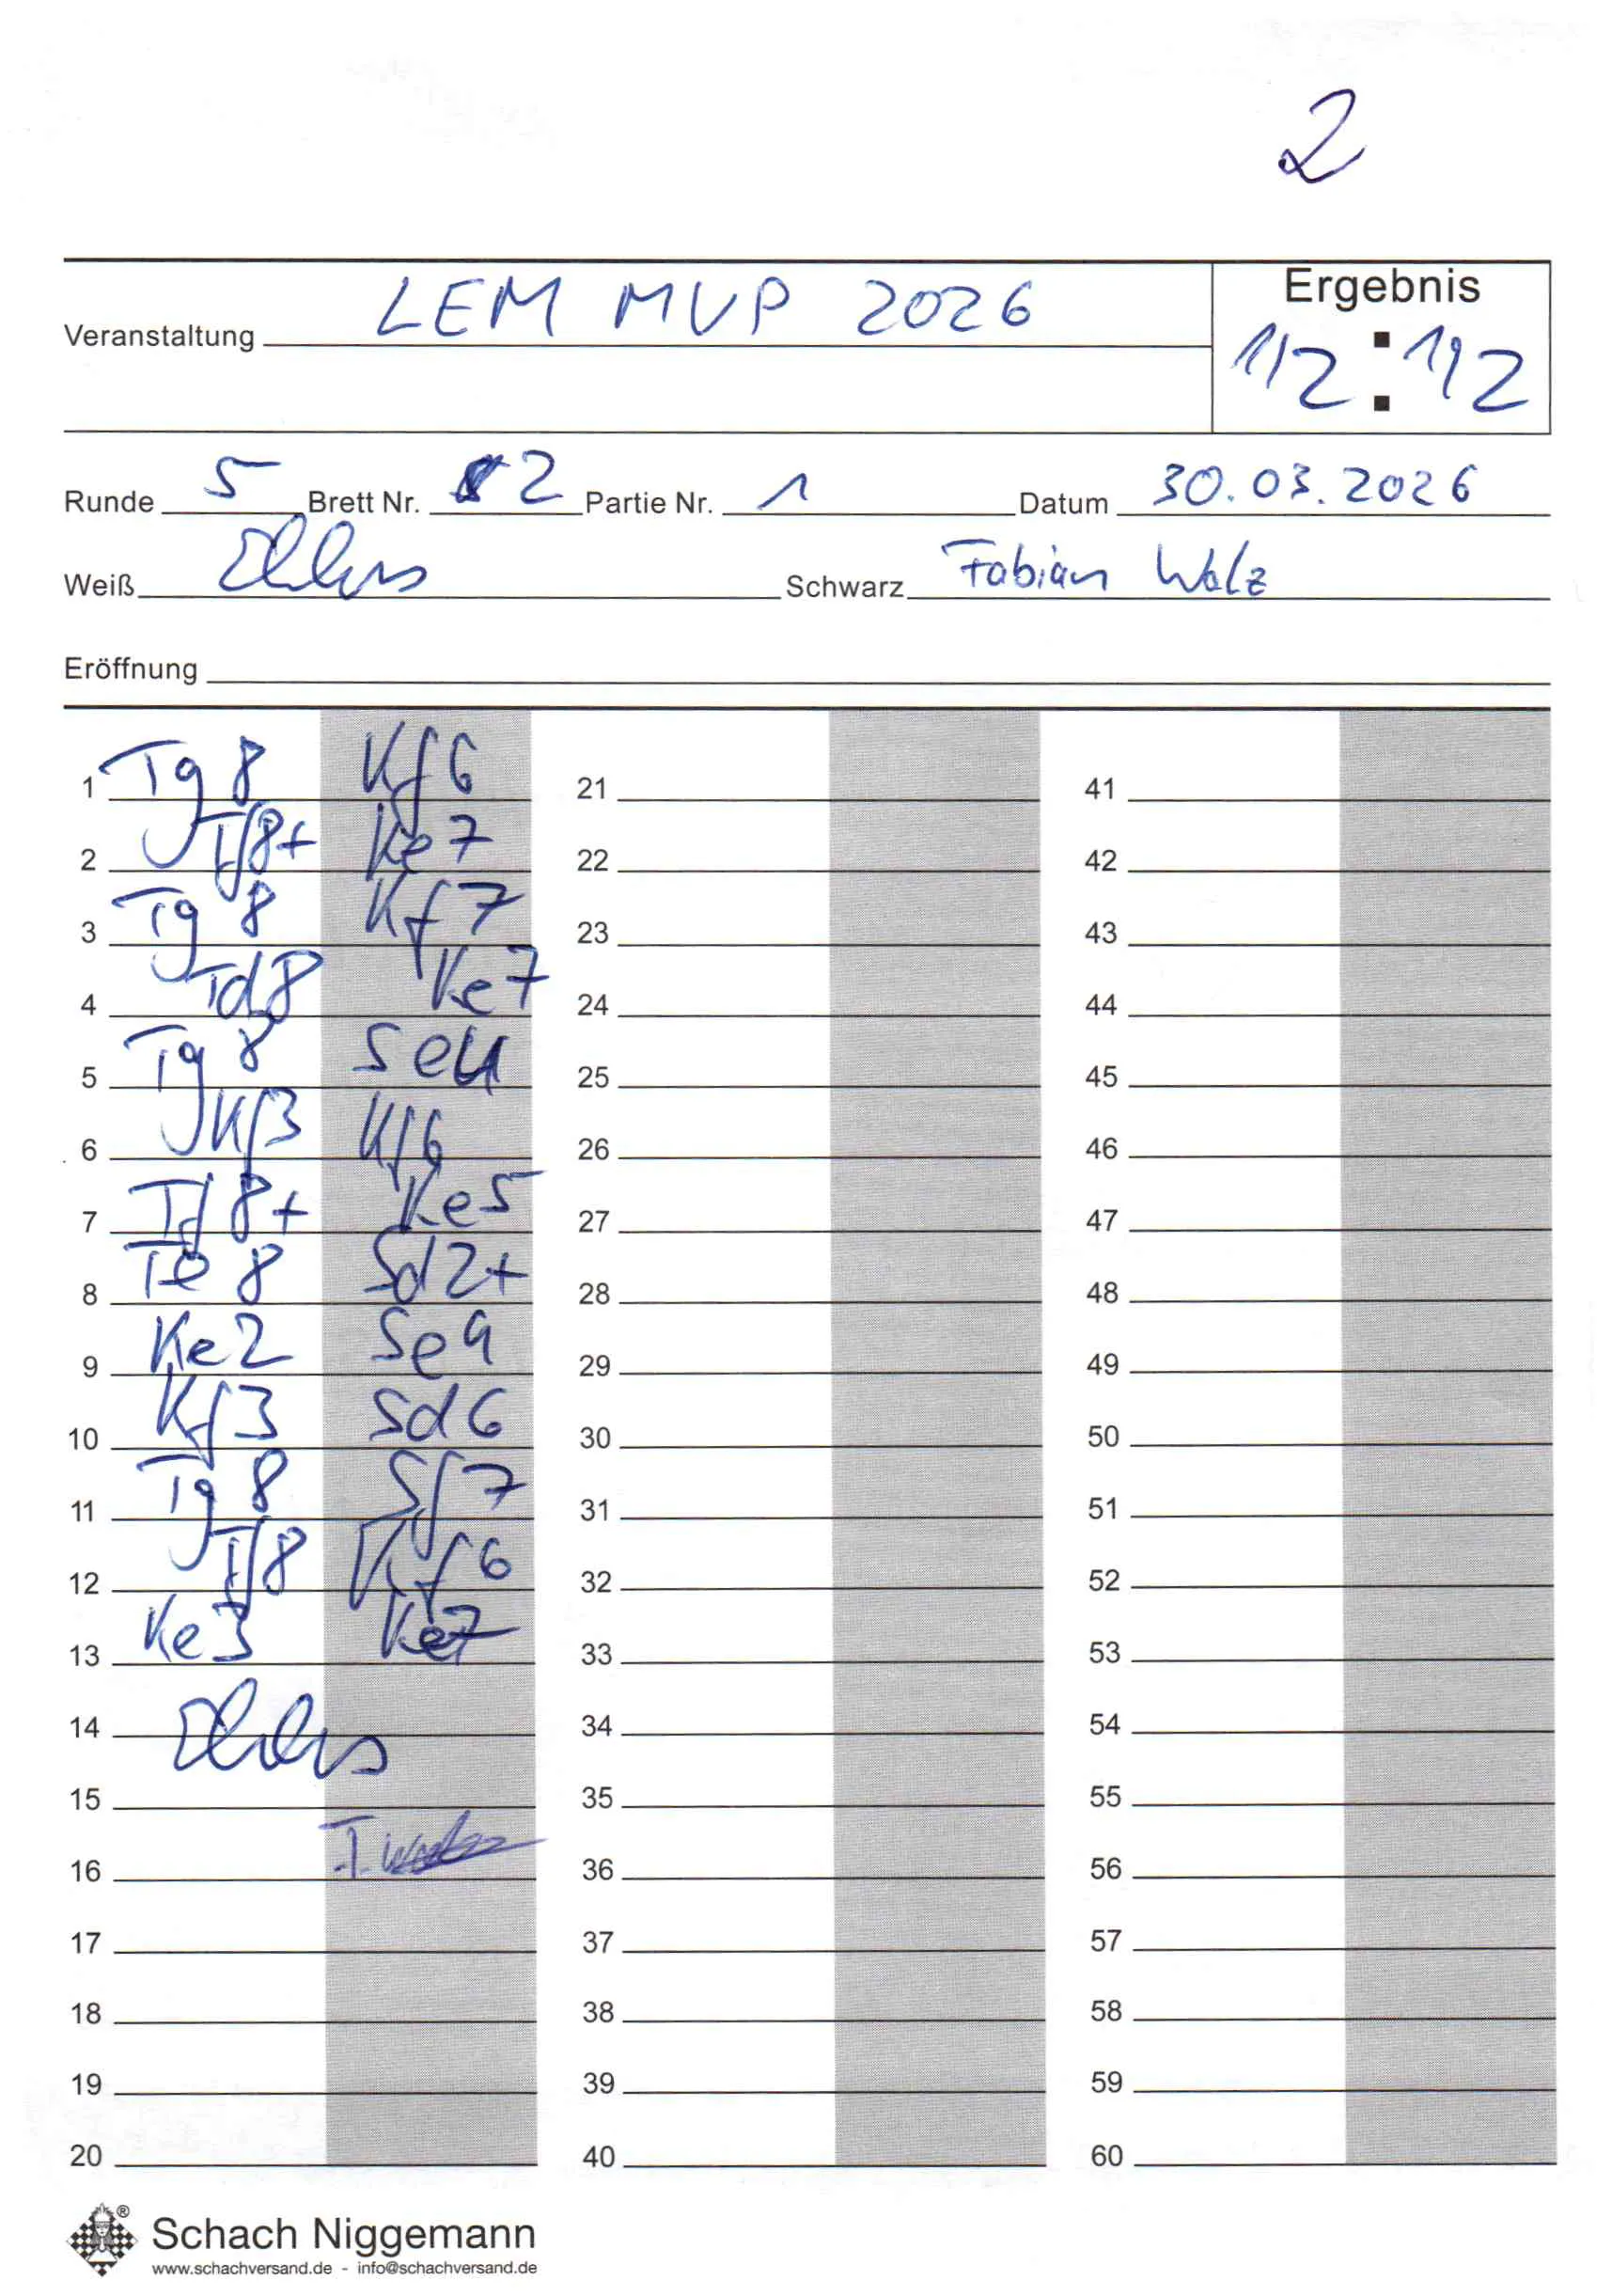 2
Veranstaltung LEM MVP 2026
Ergebnis
1/2 : 1/2
Runde 5 Brett Nr. 2 Partie Nr. 1 Datum 30.03.2026
Weiß Ehlers Schwarz Fabian Walz
Eröffnung
1 Tg8 Kf6 21 41
2 Tf8+ Ke7 22 42
3 Tg8 Kf7 23 43
4 Td8 Ke7 24 44
5 Tg8 Se4 25 45
6 Kf3 Kf6 26 46
7 Tf8+ Ke5 27 47
8 Te8 Sd2+ 28 48
9 Ke2 Se4 29 49
10 Kf3 Sd6 30 50
11 Tg8 Sf7 31 51
12 Tf8 Kf6 32 52
13 Ke3 Ke7 33 53
14 Ehlers 34 54
15 35 55
16 F. Walz 36 56
17 37 57
18 38 58
19 39 59
20 40 60
Schach Niggemann
www.schachversand.de - info@schachversand.de